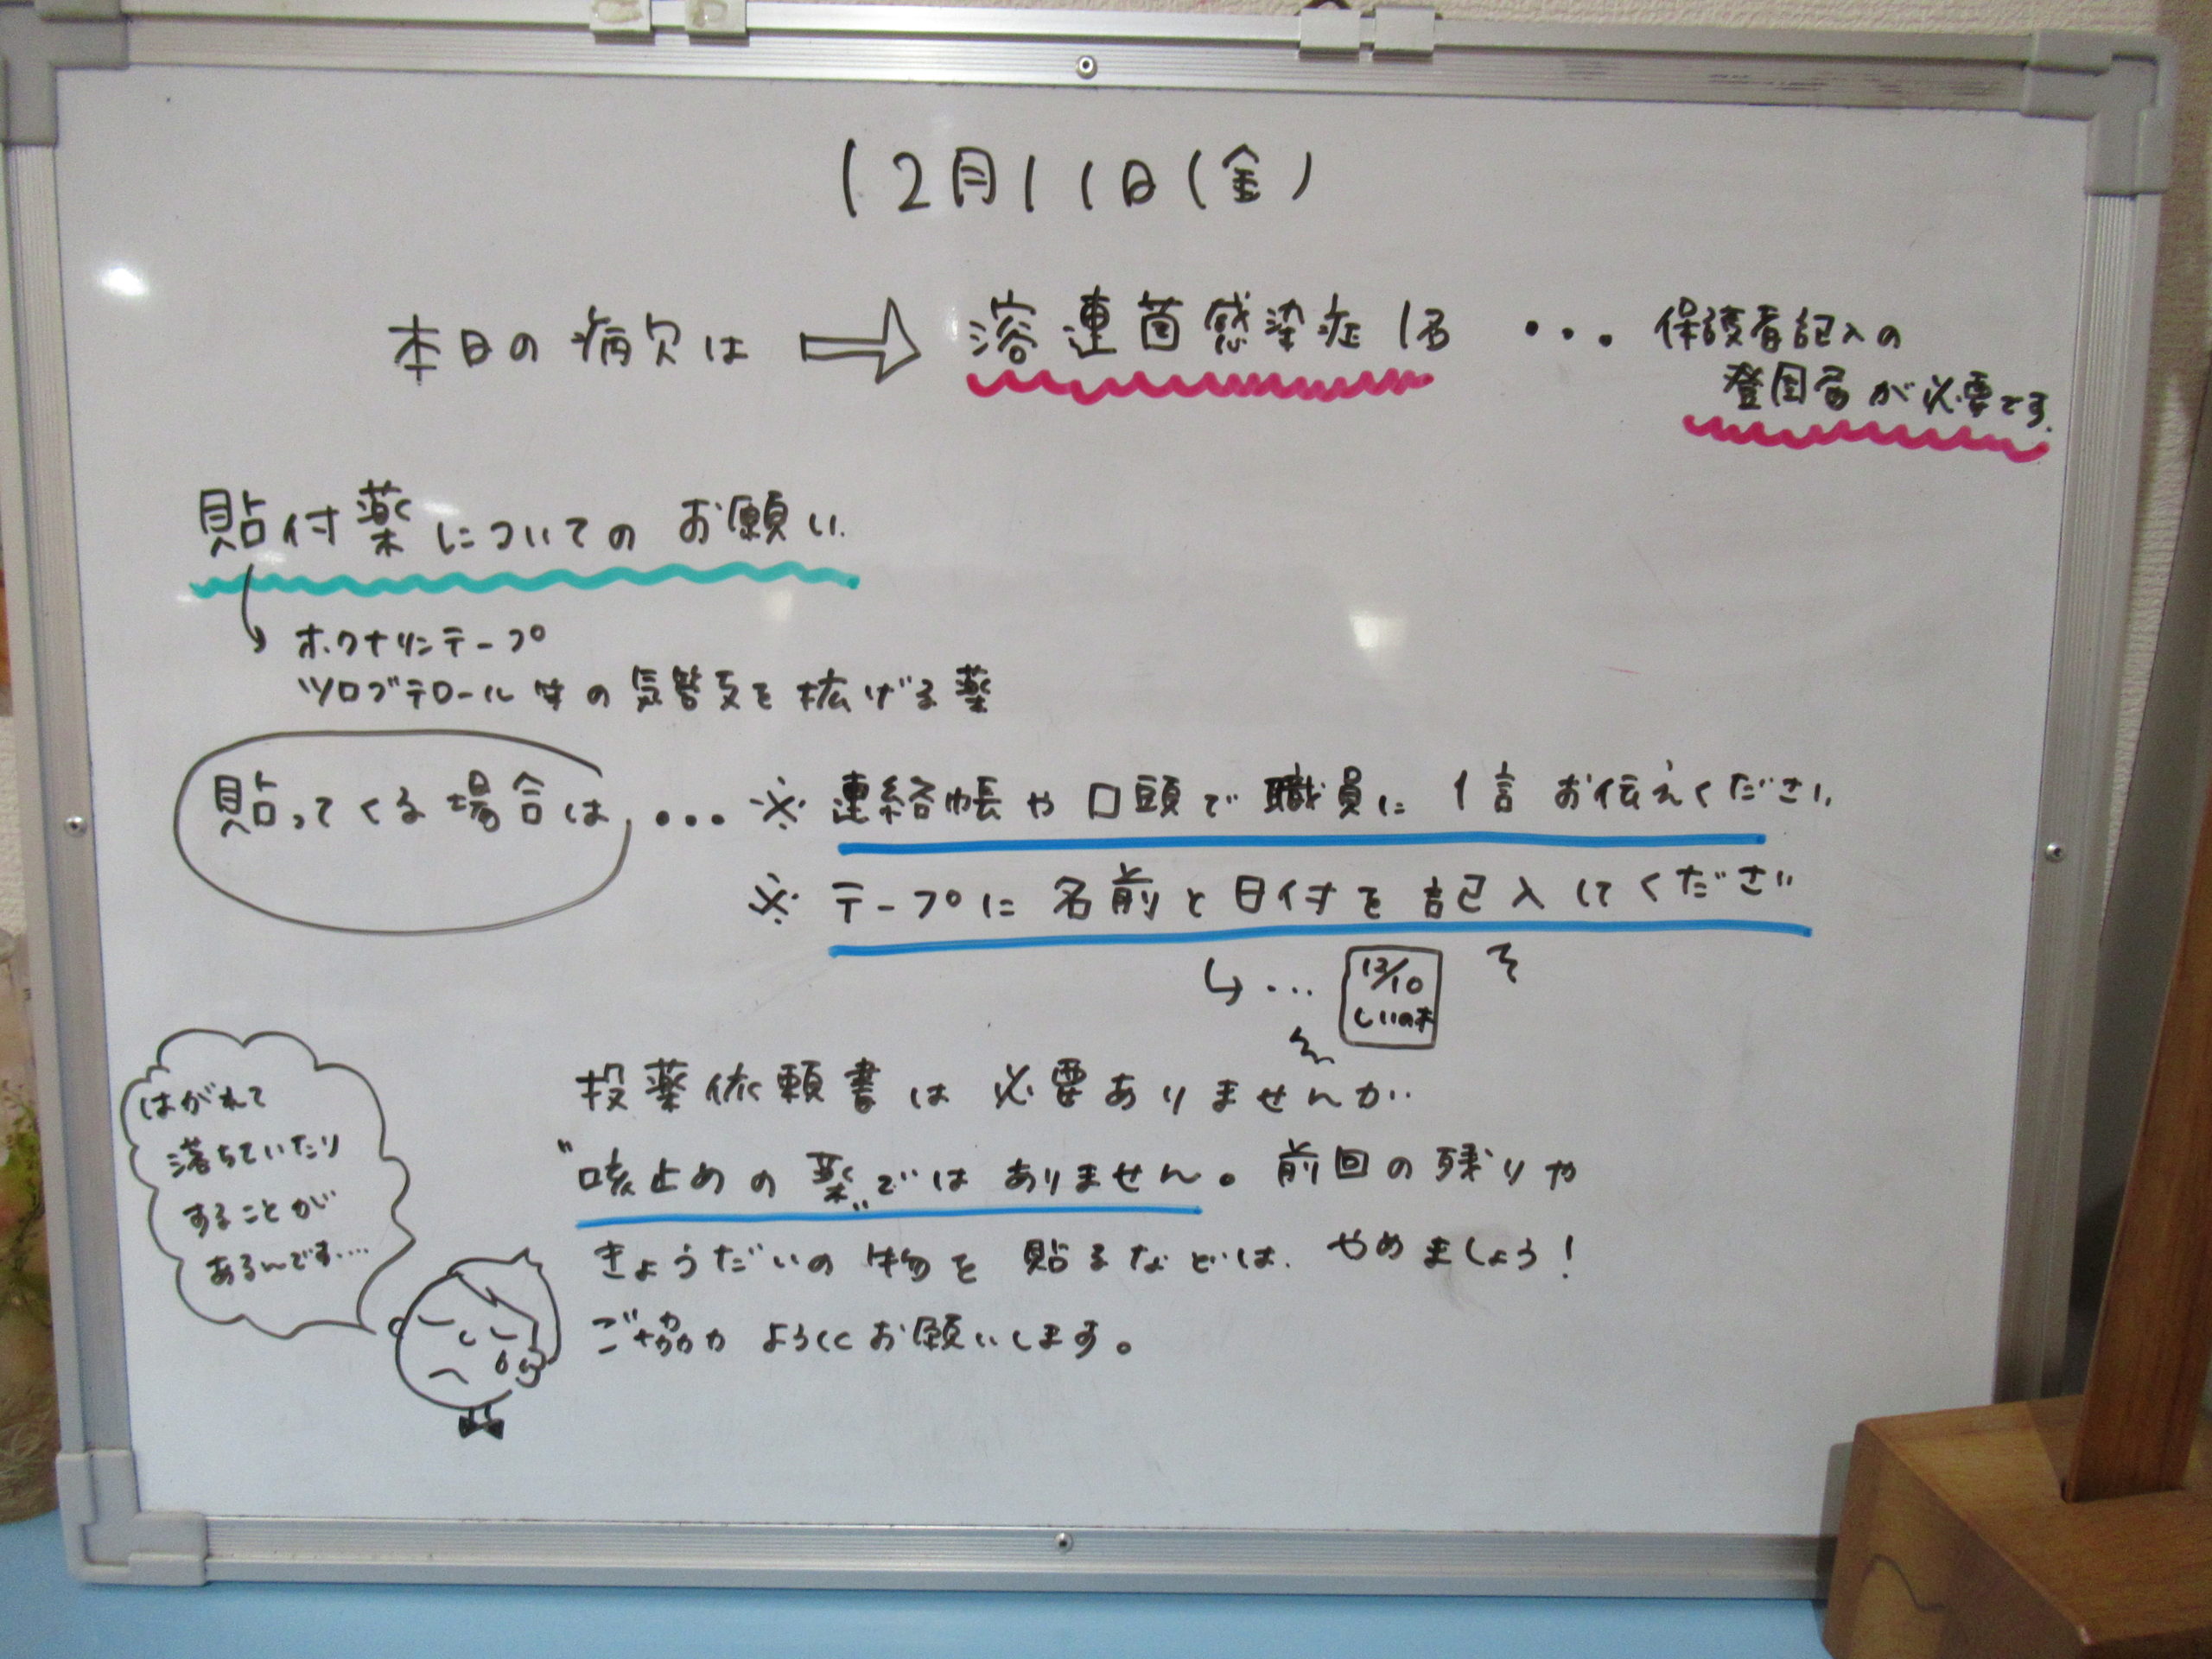 12月11日(金)
本日の病欠は ⇒ 溶連菌感染症 1名 ・・・ 保護者記入の
登園届が必要です.
貼付薬についてのお願い.
ホクナリンテープ
ツロブテロール等の気管支を拡げる薬
貼ってくる場合は, ・・・ ※ 連絡帳や口頭で職員に1言お伝えください.
※ テープに名前と日付を記入してください
↳ ・・・ 12/10
しいの木
投薬依頼書は必要ありませんが..
"咳止めの薬"ではありません。前回の残りや
きょうだいの物を貼るなどは. やめましょう!
ご協力ようしくお願いします。
はがれて
落ちていたり
することが
あるんです....